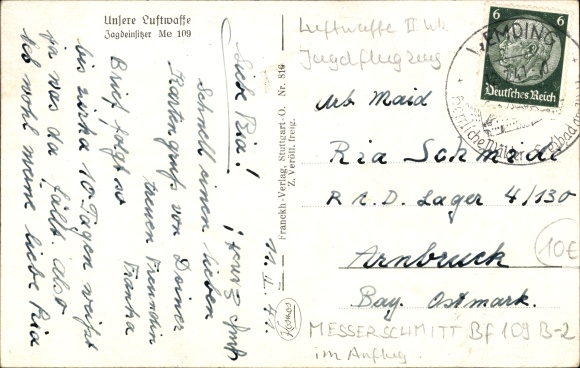 Unsere Luftwaffe
Jagdeinsitzer Me 109
Liebe Ria!
Schnell einen lieben
Kartengruß von Deiner
treuen Freundin
Franka
Brief folgt so
bis zirka 10 Tagen weißt
ja was da fällt. also
leb wohl meine liebe Ria
11. II. 41.
Franckh-Verlag, Stuttgart-O. Nr. 819
Z. Veröff. freig.
Kosmos
Luftwaffe II Wk
Jagdflugzeug
6 6
Deutsches Reich
WEMDING
Arb Maid
Ria Schmidt
R. A. D. Lager 4/130
Arnbruck
Bay. Ostmark.
10€
MESSERSCHMITT Bf 109 B-2
im Anflug.